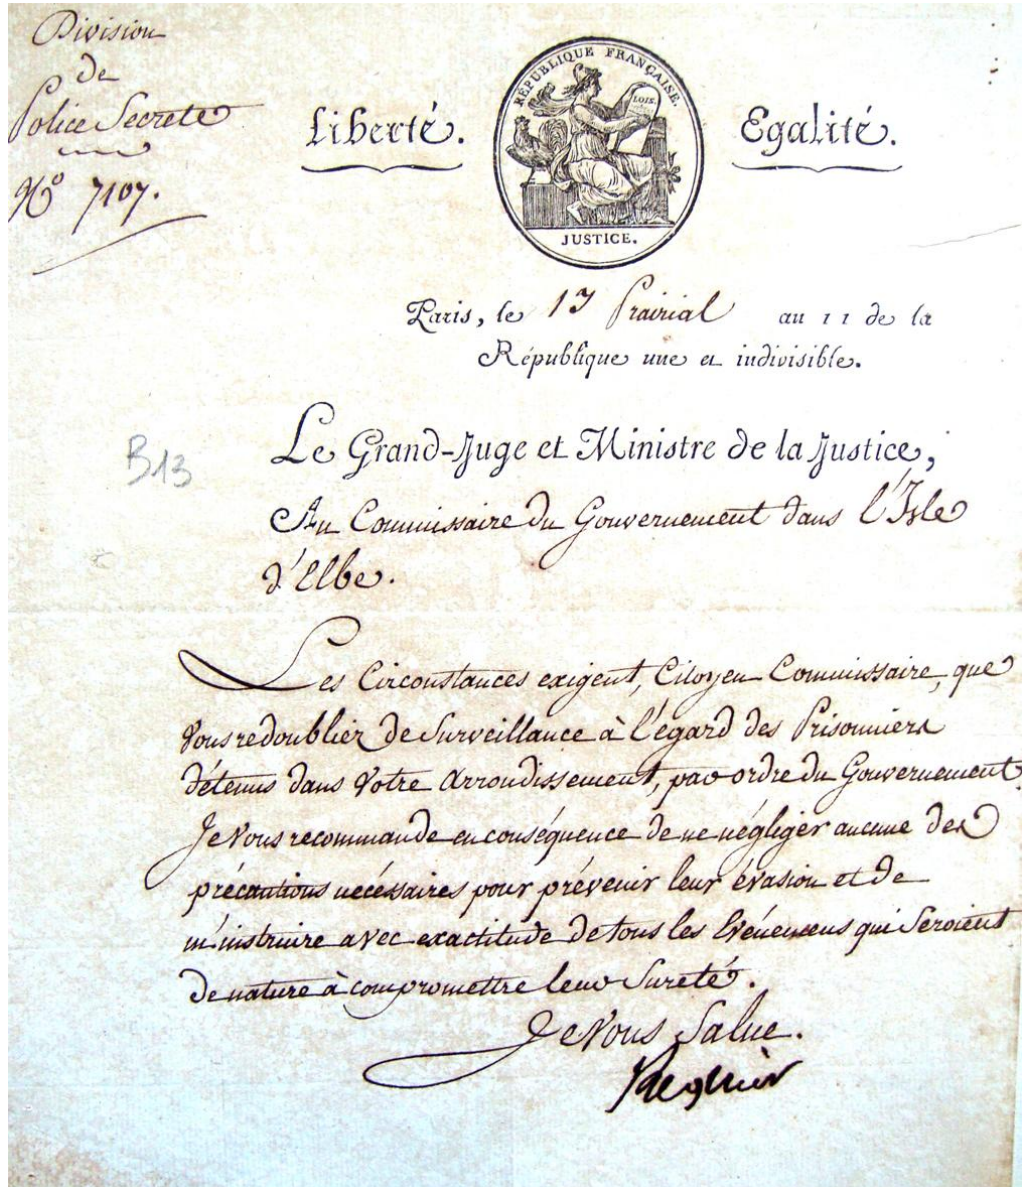 Division
de
Police Secrete
No 7107.
Liberté.
RÉPUBLIQUE FRANÇAISE.
LOIX.
JUSTICE.
Egalité.
Paris, le 17 Prairial an 11 de la
République une et indivisible.
B13
Le Grand-Juge et Ministre de la Justice,
Au Commissaire du Gouvernement dans l'Isle
d'Elbe.
Les Circonstances exigent, Citoyen Commissaire, que
vous redoubliez de Surveillance à l'égard des Prisonniers
détenus dans votre arrondissement, par ordre du Gouvernement.
Je vous recommande en conséquence de ne négliger aucune des
précautions nécessaires pour prévenir leur évasion et de
m'instruire avec exactitude de tous les Evénemens qui Seroient
de nature à compromettre leur Sureté.
Je vous Salue.
Regnier